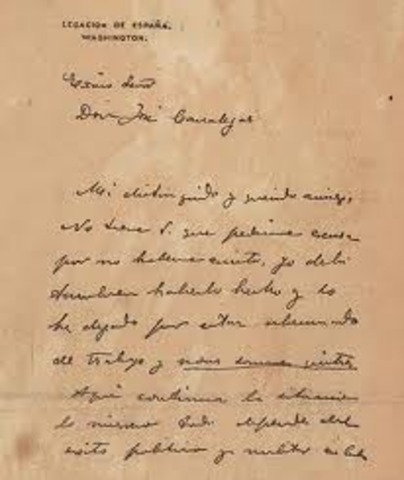 LEGACION DE ESPAÑA.
WASHINGTON.
Excmo Señor
Don José Canalejas
Mi distinguido y querido amigo,
No tiene V. que pedirme excusa
por no haberme escrito, yo debí
tambien haberlo hecho y lo
he dejado por estar abrumado
de trabajo y nous sommes quittes
Aqui continua la situacion
lo mismo. Todo depende del
exito politico y militar en Cuba